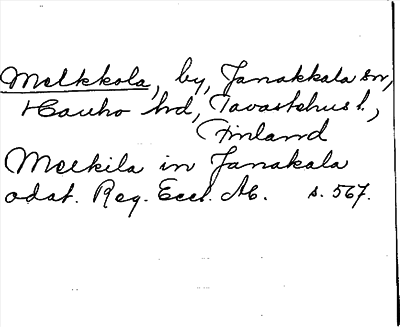 Melkkola, by, Janakkala sn,
Hauho hd, Tavastehus l.,
Finland
Melkila in Janakala
odat. Reg. Eccl. Ab. s. 567.